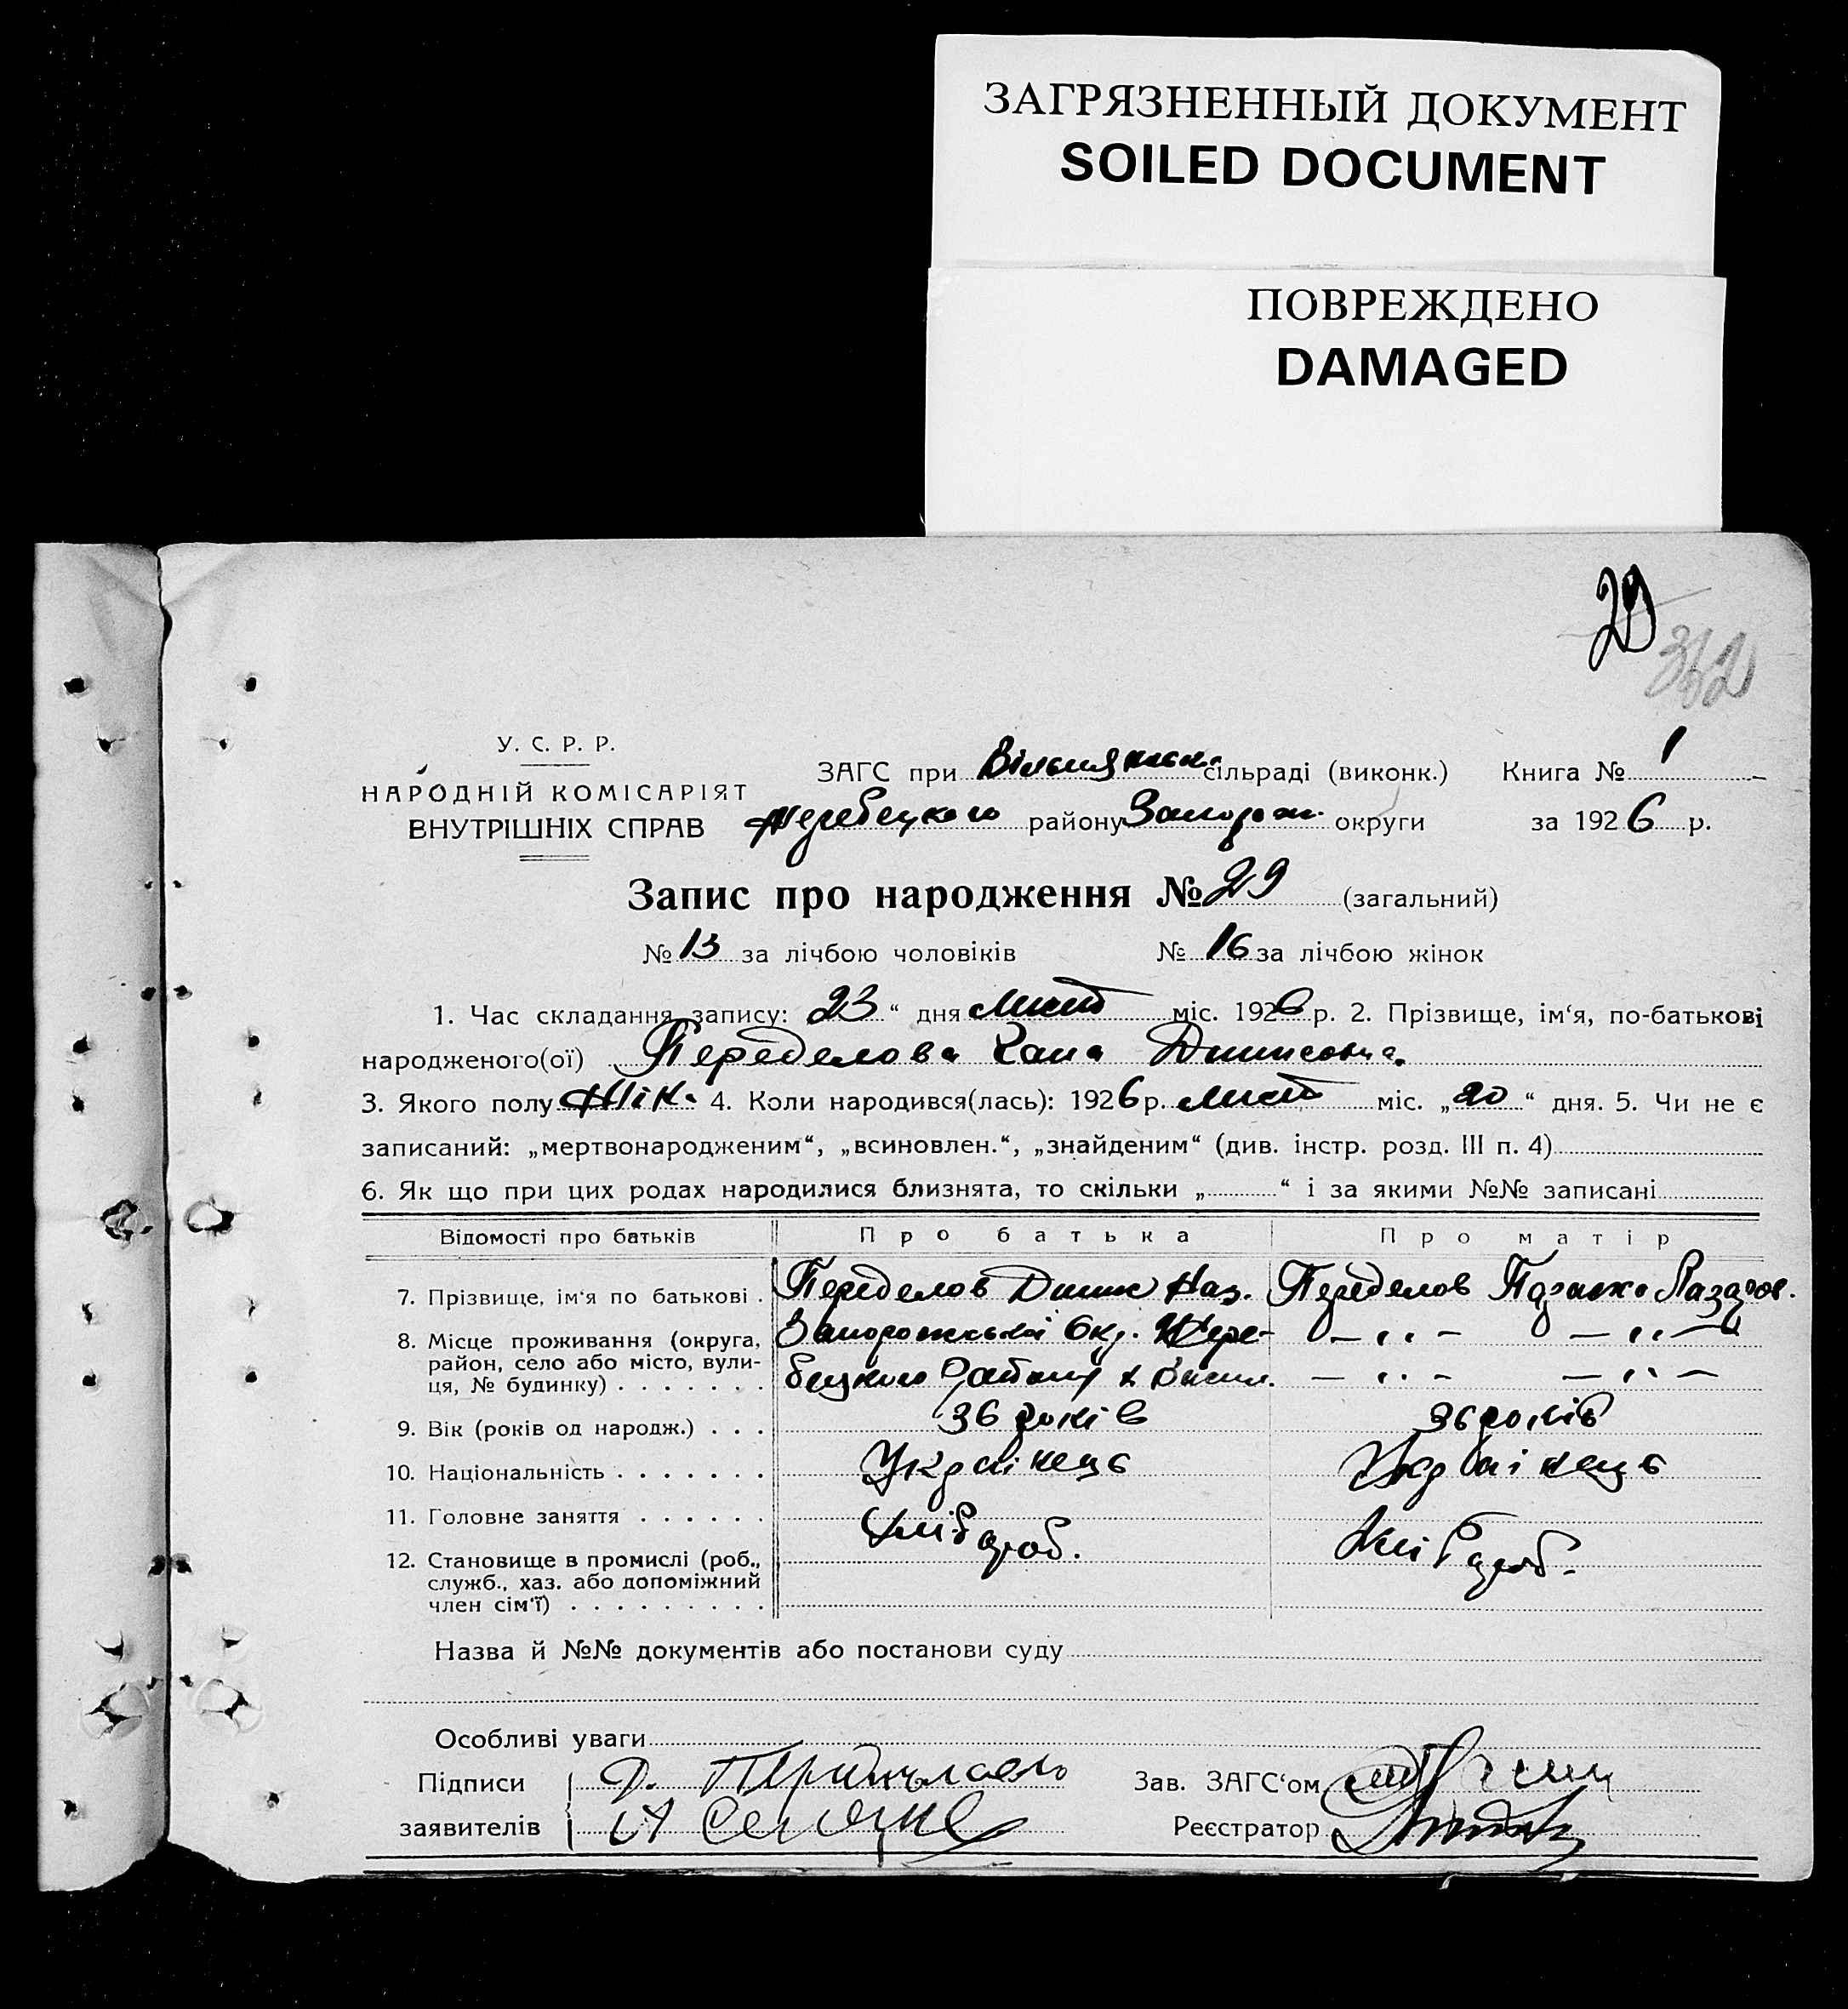 ЗАГРЯЗНЕННЫЙ ДОКУМЕНТ
SOILED DOCUMENT
ПОВРЕЖДЕНО
DAMAGED
29
У. С. Р. Р.
НАРОДНІЙ КОМІСАРІЯТ
ВНУТРІШНІХ СПРАВ
ЗАГС при сільраді (виконк.) Книга № 1
Жеребецкого району Запорож. округи за 1926 р.
Запис про народження № 29 (загальний)
№ 13 за лічбою чоловіків № 16 за лічбою жінок
1. Час складання запису: 23 “ дня лист міс. 1926 р. 2. Прізвище, ім‘я, по-батькові
народженого(ої) Переделова
3. Якого полу жін. 4. Коли народився(лась): 1926 р. лист міс. „20“ дня. 5. Чи не є
записаний: „мертвонародженим“, „всиновлен.“, „знайденим“ (див. інстр. розд. III п. 4)
6. Як що при цих родах народилися близнята, то скільки „ “ і за якими №№ записані
Відомості про батьків Про батька Про матір
7. Прізвище, ім‘я по батькові . Переделов Наз. Переделов Лазаров.
8. Місце проживання (округа, район, село або місто, вулиця, № будинку) . . . . . . .
Запорожської Окр. Жере- — „ — — „ —
бецкого Району — „ — — „ —
9. Вік (років од народж.) . . . 36 років 36 років
10. Національність . . . . . . . Українець Українець
11. Головне заняття . . . . . . Хлібороб. Хлібороб.
12. Становище в промислі (роб., служб., хаз. або допоміжний член сім‘ї) . . . . . . . . .
Назва й №№ документів або постанови суду
Особливі уваги
Підписи
заявителів
Зав. ЗАГС‘ом
Реєстратор